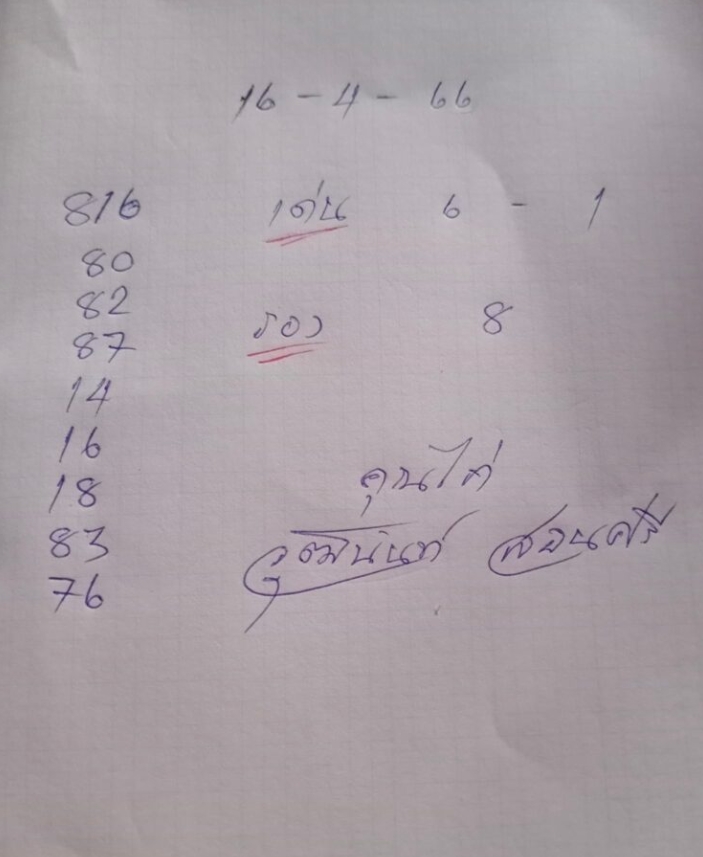 16 - 4 - 66
816 เด่น 6 - 1
80
82
รอง 8
87
14
16
18
คุณไก่
83
วุฒินันท์ สอนศรี
76